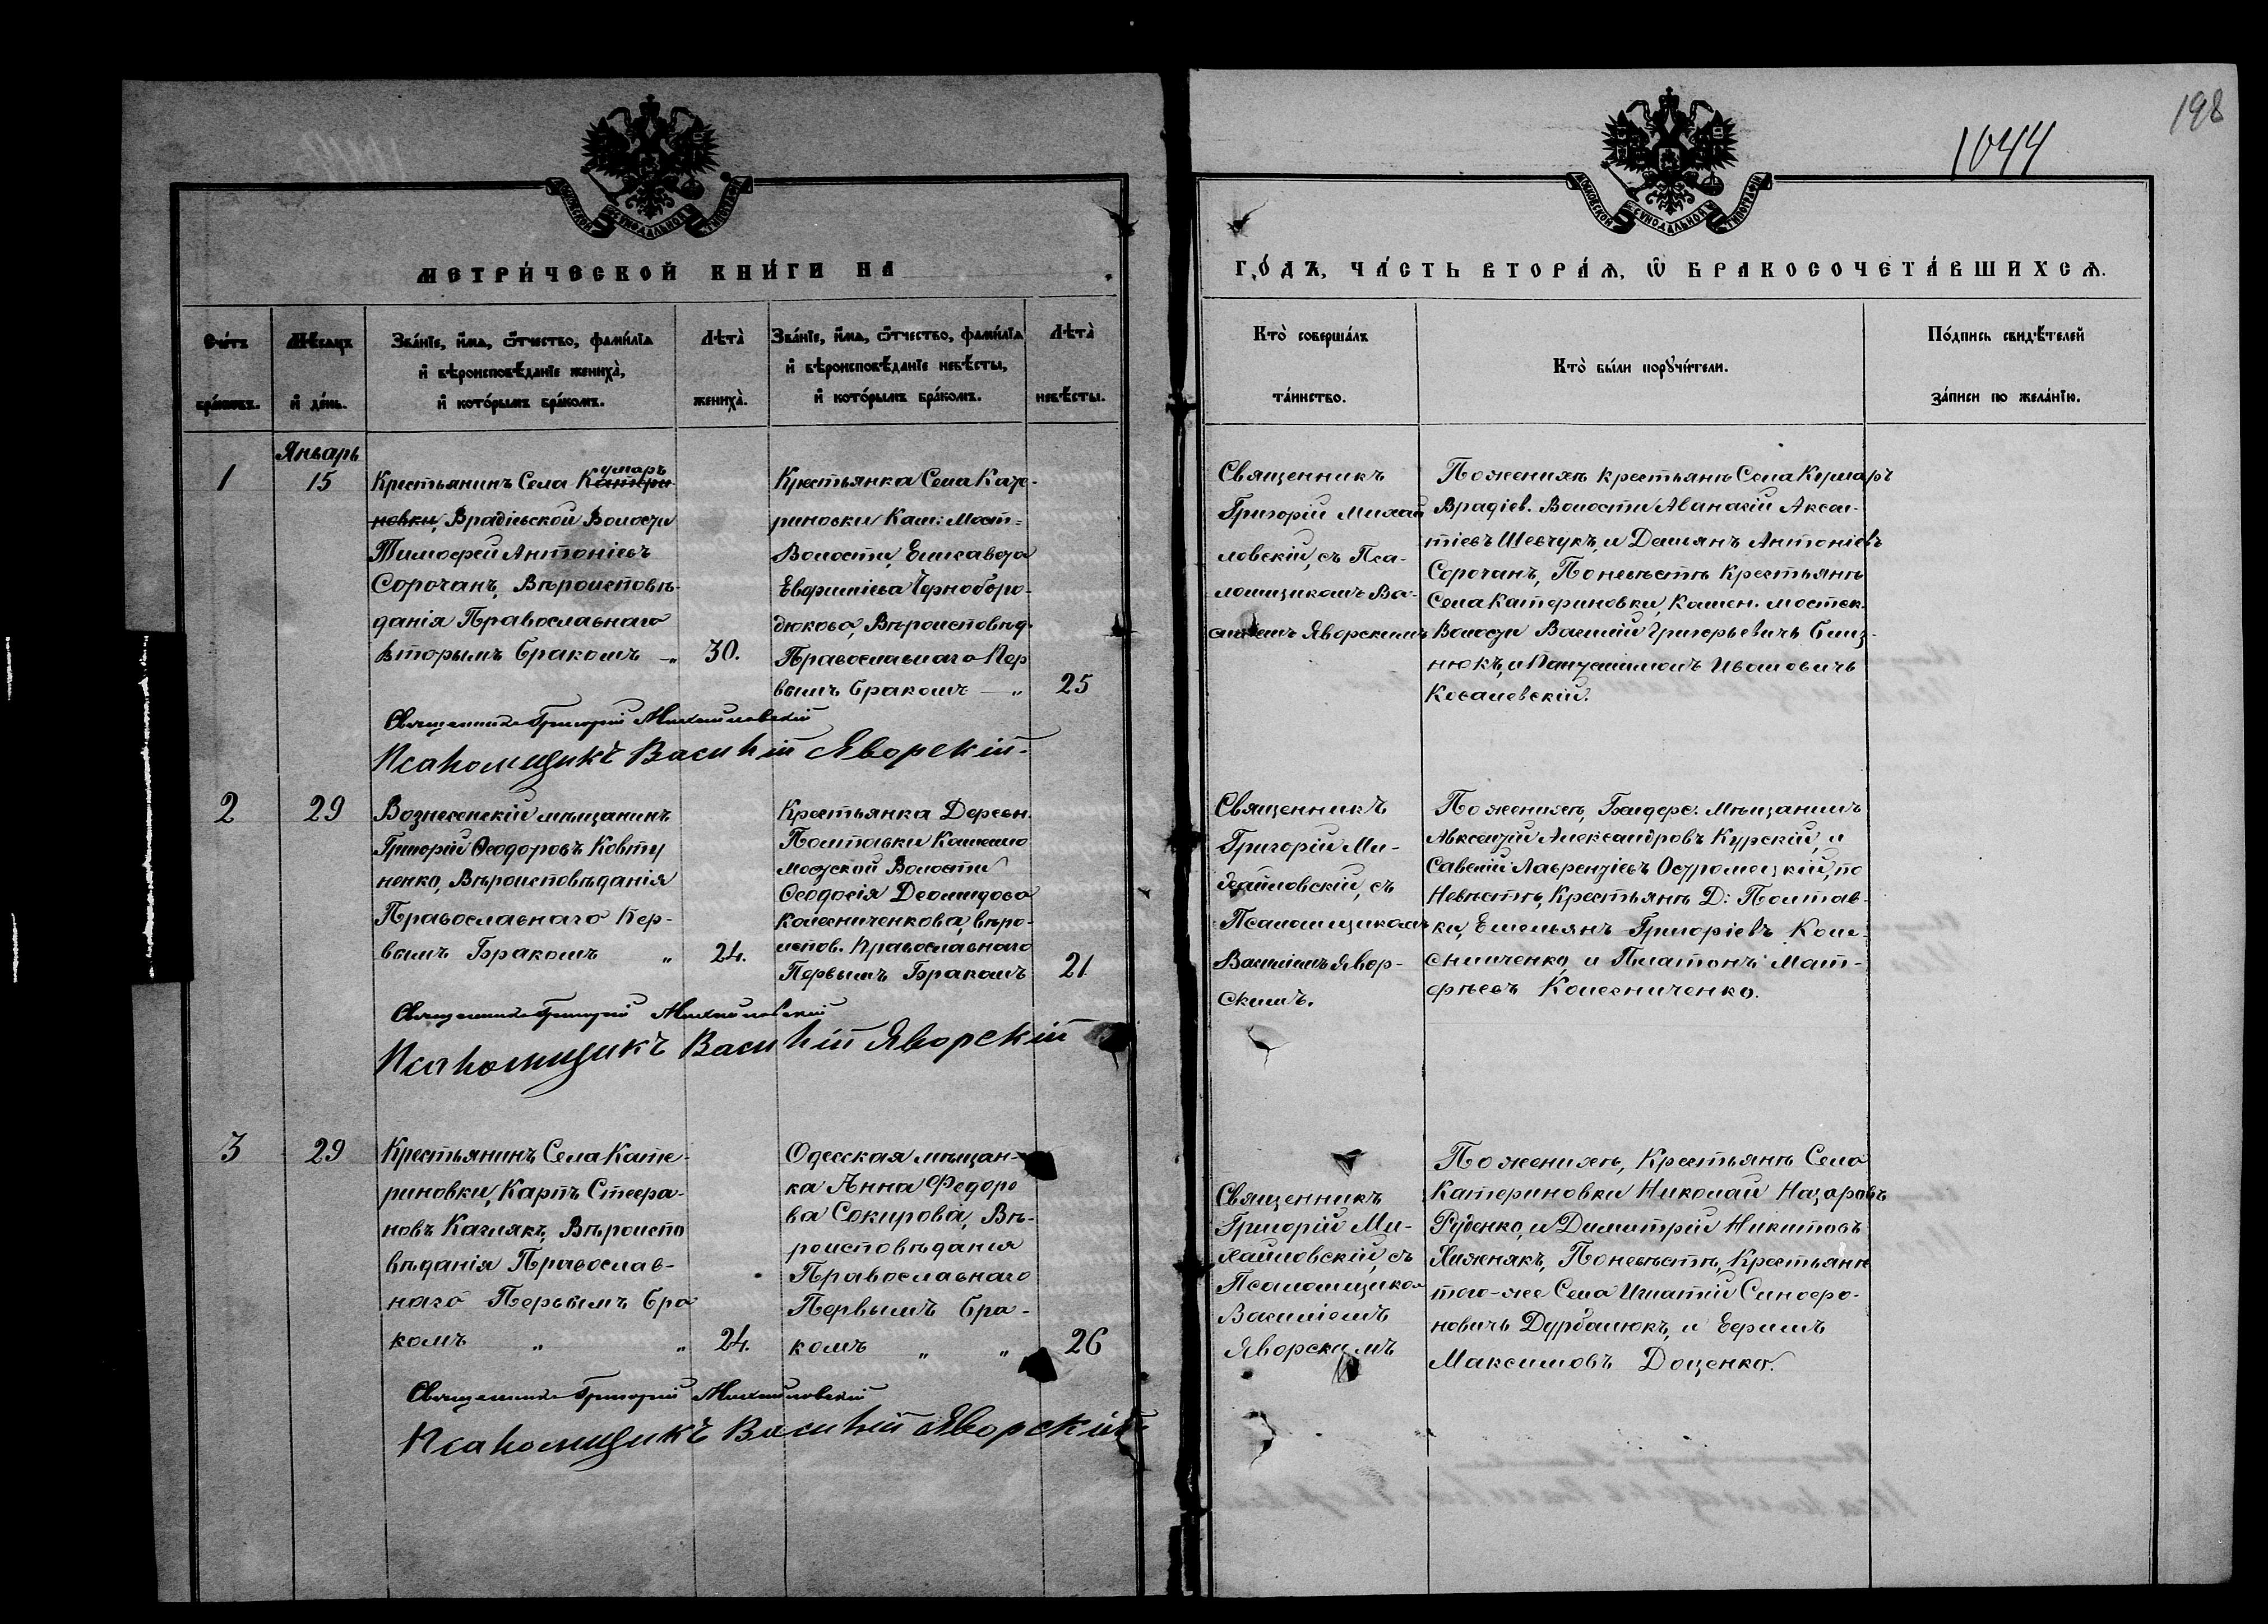 198
1044
МОСКОВСКОЙ СѴНОДАЛЬНОЙ ТИПОГРАФІИ
МОСКОВСКОЙ СѴНОДАЛЬНОЙ ТИПОГРАФІИ
МЕТРИ́ЧЕСКОЙ КНИ́ГИ НА
ГО́ДЪ, ЧА́СТЬ ВТОРА́Ѧ, Ѿ БРАКОСОЧЕТА́ВШИХСѦ.
Сче́тъ
бра́ковъ.
Мѣ́сѧцъ
и҆ де́нь.
Зва́нїе, и҆́мѧ, ѻ҆́тчество, фами́лїѧ
и҆ вѣроисповѣ́данїе жениха̀,
и҆ кото́рымъ бра́комъ.
Лѣта̀
жениха̀.
Зва́нїе, и҆́мѧ, ѻ҆́тчество, фами́лїѧ
и҆ вѣроисповѣ́данїе невѣ́сты,
и҆ кото́рымъ бра́комъ.
Лѣта̀
невѣ́сты.
Кто̀ соверша́лъ
та́инство.
Кто̀ бы́ли порꙋчи́тели.
По́дпись свидѣ́телей
за́писи по жела́нїю.
1
Январь
15
Крестьянинъ Села Катери-
умаръ
новки, Врадіевской Волости
Тимофей Антоніевъ
Сорочанъ, Вѣроисповѣ-
данія Православнаго
вторымъ бракомъ „
30.
Крестьянка Села Кате-
риновки Кам: Мост=
Волости, Елисавета
Евфиміева Черноборо-
дюкова, Вѣроисповѣд.
Православнаго Пер
вымъ бракомъ — „
25
Священникъ
Григорій Михай
ловскій, съ Пса-
ломщикомъ Ва-
силіемъ Яворскимъ
По женихѣ крестьянѣ Села Кумаръ
Врадіев. Волости Аѳанасій Аксен-
тіевъ Шевчукъ, и Демьянъ Антоніевъ
Сорочанъ, По невѣстѣ Крестьянѣ
Села Катериновки, Камен. мостск.
Волости Василій Григорьевичъ Близ-
нюкъ, и Ивановичъ
Священникъ Григорій Михайловскій
Псаломщикъ Василій Яворскій.
2
29
Вознесенскій мѣщанинъ
Григорій Ѳеодоровъ Ковту
ненко, Вѣроисповѣданія
Православнаго Пер-
вымъ Бракомъ „
24.
Крестьянка Деревн.
Полтавки Каменно
мостской Волости
Ѳеодосія Деомидова
Колесниченкова, вѣро-
испов. Православнаго
Первымъ Бракомъ
21
Священникъ
Григорій Ми-
хайловскій, съ
Псаломщикомъ
Василіемъ Явор-
скимъ.
По женихѣ, Бендерс. Мѣщанинъ
Авксентій Александровъ Курскій, и
Савелій Лаврентіевъ Остромецкій, по
Невѣстѣ, Крестьянѣ Д: Полтав-
ки, Емельянъ Григоріевъ Коле-
сниченко, и Платонъ Мат-
ѳѣевъ Колесниченко.
Священникъ Григорій Михайловскій
Псаломщикъ Василій Яворскій
3
29
Крестьянинъ Села Кате-
риновки, Карпъ Стефа-
новъ Качлякъ, Вѣроиспо
вѣданія Православ-
наго Первымъ бра
комъ „ „
24.
Одесская мѣщан-
ка Анна Федоро
ва Сокирова, Вѣ-
роисповѣданія
Православнаго
Первымъ бра-
комъ „ „
26
Священникъ
Григорій Ми-
хайловскій, съ
Псаломщиком
Василіемъ
Яворскимъ
По женихѣ, Крестьянѣ Села
Катериновки Николай Назаровъ
Руденко, и Димитрій Никитовъ
Хижнякъ, По невѣстѣ, Крестьянѣ
того-же Села Игнатій Синофо-
новичъ Дурбалюкъ, и Ефимъ
Максимовъ Доценко.
Священникъ Григорій Михайловскій
Псаломщикъ Василій Яворскій